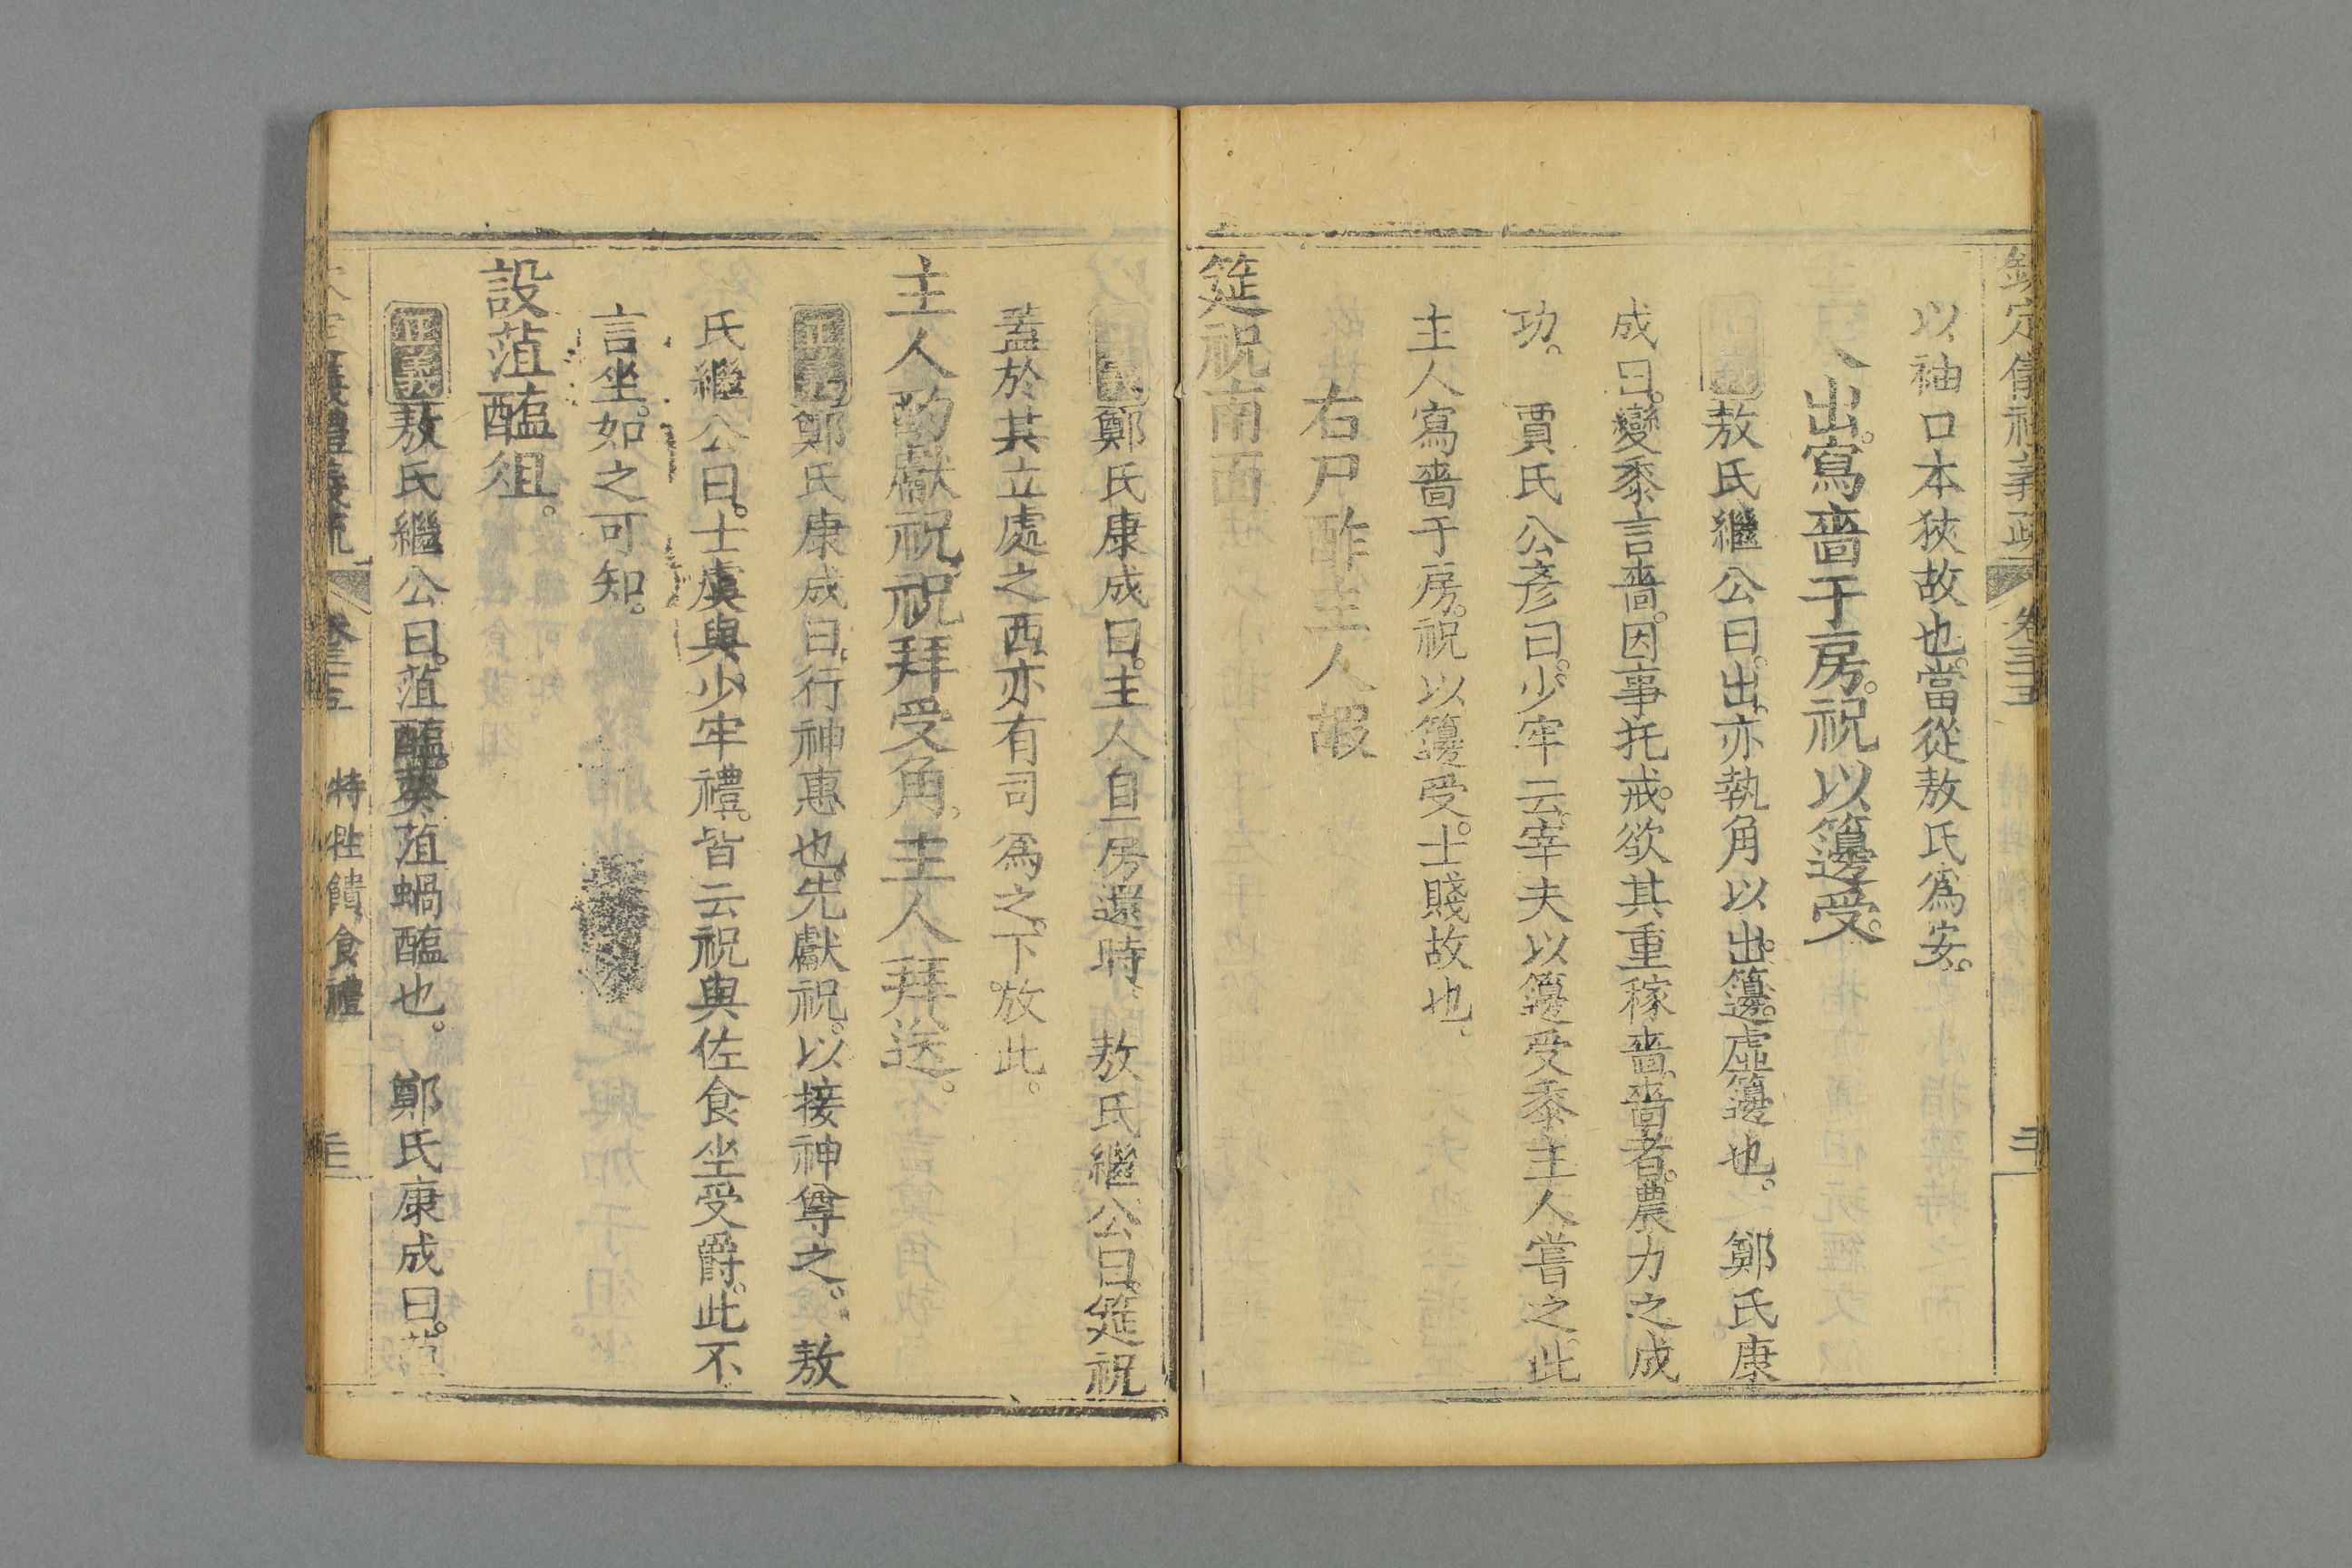 欽定儀禮義疏 卷三十五
以袖口本狹故也當從敖氏爲安
出寫嗇于房祝以籩受
敖氏繼公曰出亦執角以出籩虛籩也 鄭氏康
成曰變黍言嗇因事托戒欲其重稼嗇嗇者農力之成
功 賈氏公彥曰少牢云宰夫以籩受黍主人嘗之此
主人寫嗇于房祝以籩受士賤故也
右尸酢主人嘏
筵祝南面
正義鄭氏康成曰主人自房還時 敖氏繼公曰筵祝
蓋於其立處之西亦有司爲之下放此
主人酌獻祝祝拜受角主人拜送
正義鄭氏康成曰行神惠也先獻祝以接神尊之 敖
氏繼公曰士虞與少牢禮皆云祝與佐食坐受爵此不
言坐如之可知
設菹醢俎
正義敖氏繼公曰菹醢葵菹蝸醢也 鄭氏康成曰菹
儀禮義疏 卷三十五 特牲饋食禮